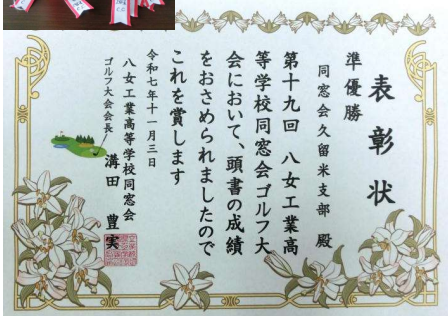 表彰状
準優勝
同窓会久留米支部 殿
第十九回 八女工業高
等学校同窓会ゴルフ大
会において、頭書の成績
をおさめられましたので
これを賞します
令和七年十一月三日
八女工業高等学校同窓会
ゴルフ大会会長
溝田 豊実